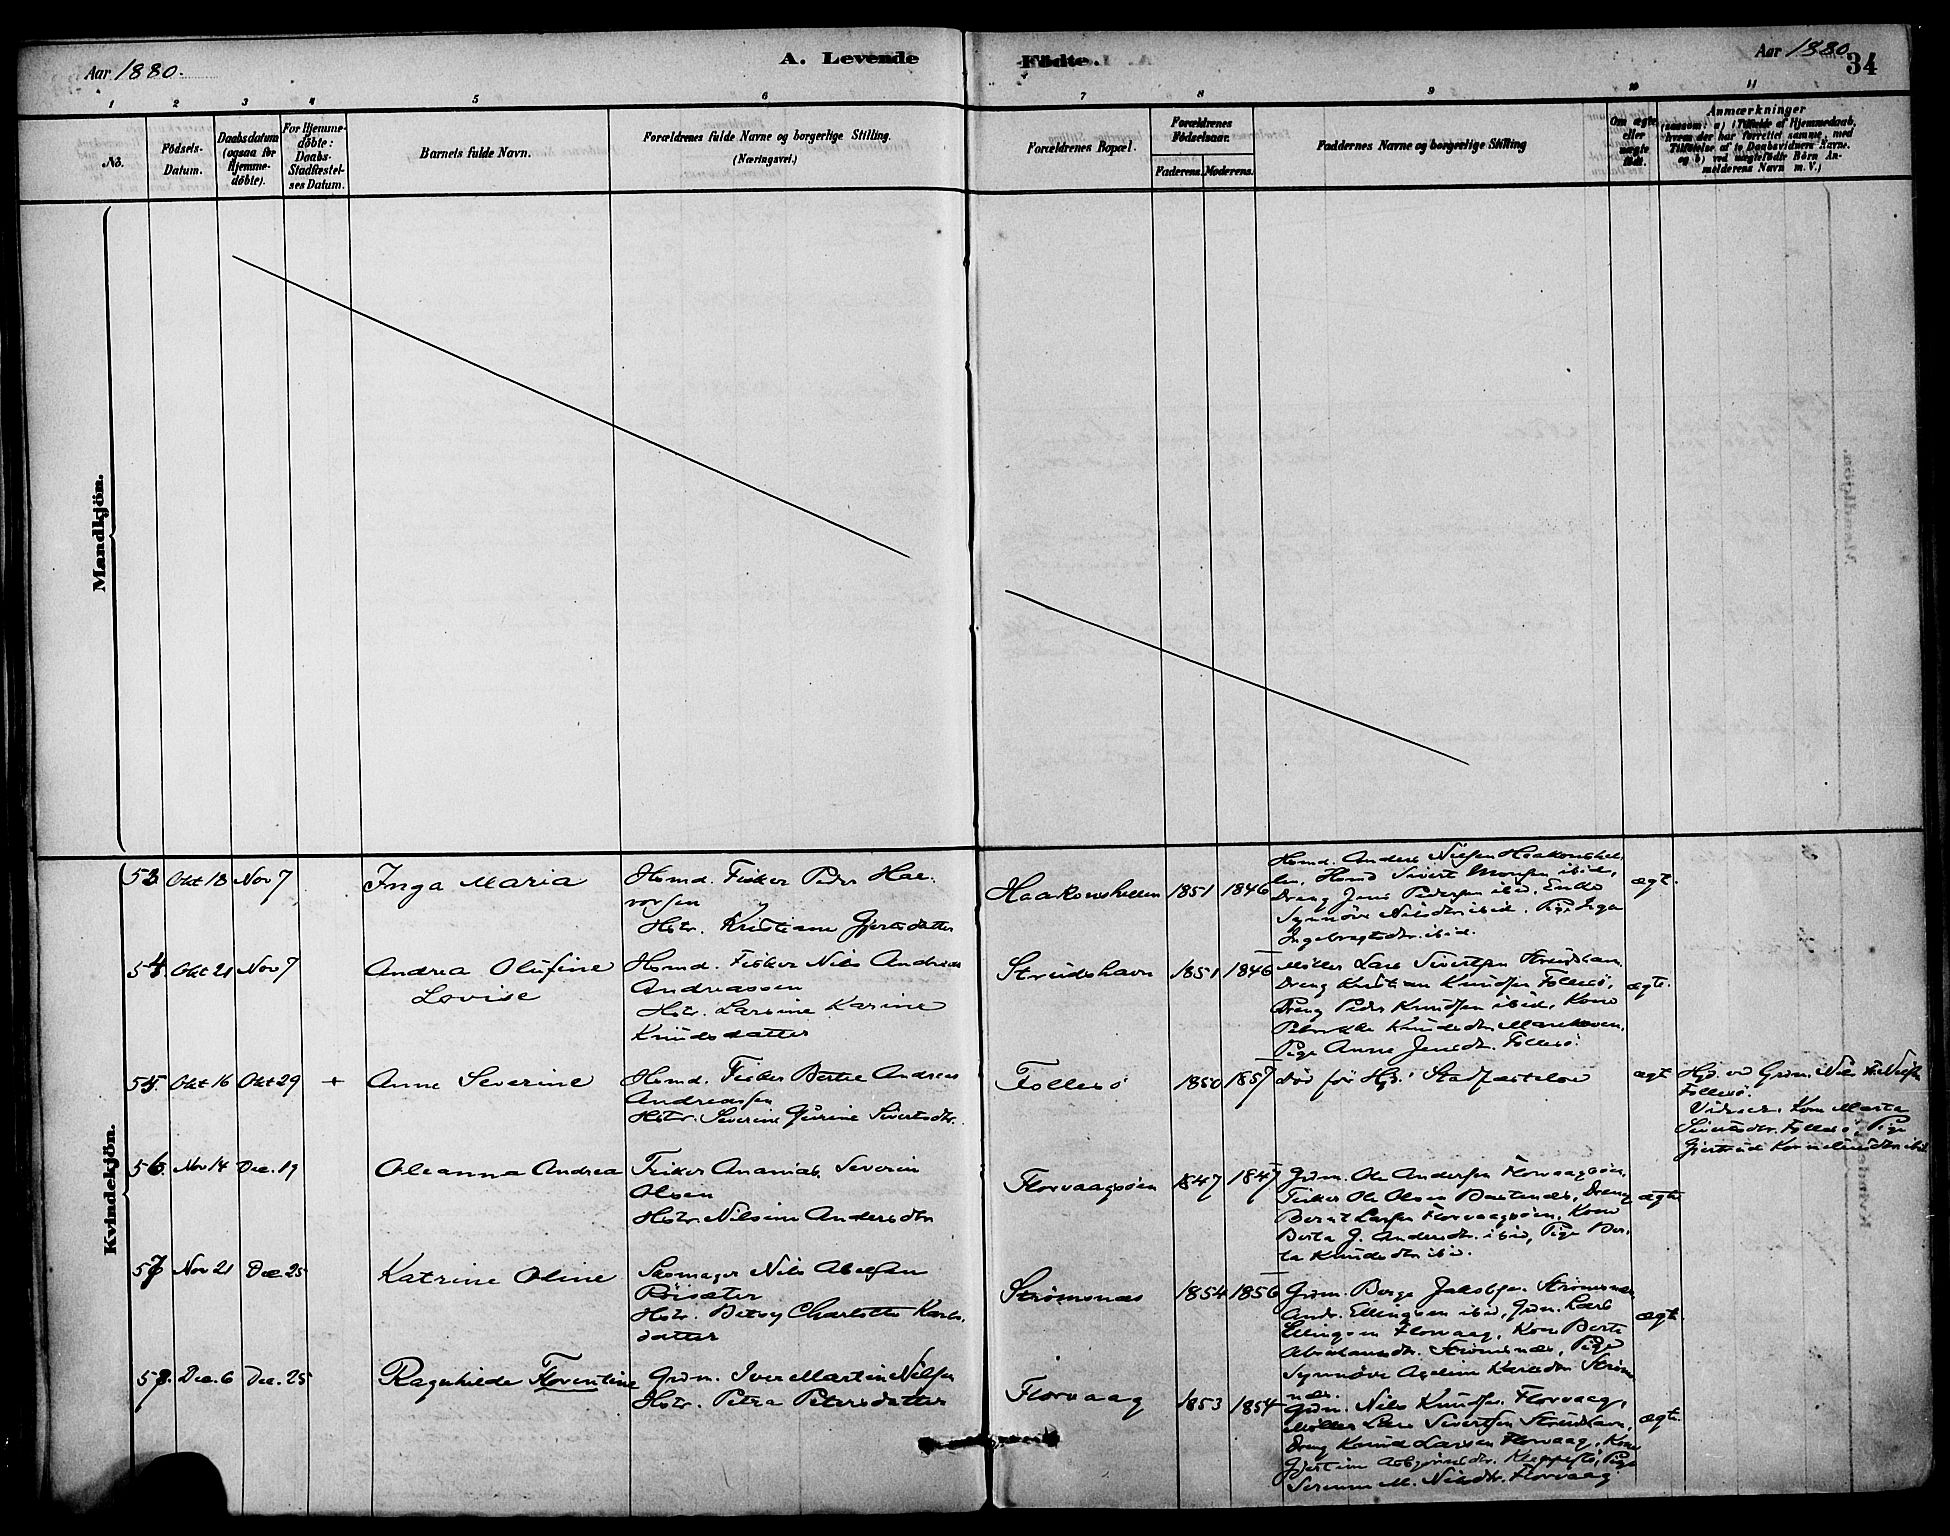 Aar 1880.
A. Levende Födte.
Aar 1880
34
1 2 3 4 5 6 7 8 9 10 11
No.
Födsels-
Datum.
Daabsdatum
(ogsaa for
Hjemme-
döbte).
For Hjemme-
döbte:
Daabs-
Stadfæstel-
ses Datum.
Barnets fulde Navn.
Forældrenes fulde Navne og borgerlige Stilling.
(Næringsvei.)
Forældrenes Bopæl.
Forældrenes
Födselsaar.
Faderens. Moderens.
Faddernes Navne og borgerlige Stilling
Om ægte
eller
uægte
født.
Anmærkninger
(saasom: a) i Tilfælde af Hjemmedaab,
hvem der har forrettet samme, med
Tilföielse af to Daabsvidners Navne.
og b) ved uægtefödte Börn An-
melderens Navn m. V.)
Mandkjön.
Kvindekjön.
53 Okt 18 Nov 7
Inga Maria
Hsmd. Fisker Peder Hal-
vorsen
Hstr. Kristiane Gjertsdatter
Haakonshellen 1851 1846
Hsmd. Anders Nilsen Haakonshel-
len, Hsmd Sivert Monsen ibid,
Dreng Jens Pedersen ibid, Enke
Synnöve Nilsdtr ibid. Pige Inga
Ingebrigtsdtr ibid.
ægt.
54 Okt 21 Nov 7
Andrea Olufine
Lovise
Hsmd. Fisker Nils Andreas
Andreassen
Hstr. Larsine Karine
Knudsdatter
Strudshavn 1851 1846
Möller Lars Sivertsen Strudshavn,
Dreng Kristian Knudsen Follesö,
Dreng Peder Knudsen ibid, Kone
Knudsdtr
Pige Anne Jensdtr. Follesö.
ægte.
55. Okt 16 Okt 29 +
Anne Severine
Hsmd. Fisker Andreas
Andreassen
Hstr. Severine Gurine Sivertsdtr.
Follesö 1850 1857
död för Hjd. Stadfæstelse
ægt
Hjd. ved Grdm. Nils Nilsen
Follesö.
Vidner. Kone Marta
Sivertsdtr. Follesö, Pige
Gjertrud Kornelius dtr ibid.
56. Nov 14 Dec. 19
Oleanna Andrea
Fisker Ananias Severin
Olsen
Hstr. Nilsine Andersdtr
Florvaagsöen 1847 1847
Grdm. Ole Andersen Florvaagsöen,
Fisker Ole Olsen Dreng
Bernt Larsen Florvaagsöen, Kone
Berta J. Andersdtr. ibid, Pige Ber-
ta Knudsdtr ibid.
ægte
57 Nov 21 Dec 25
Katrine Oline
Skomager Nils Abelsen
Röisæter
Hstr. Betsy Charlotte Karls-
datter
Strömsnæs 1854 1856
Grdm. Börge Jakobsen Strömsnæs
Andr. Ellingsen ibid, Grdm. Lars
Ellingsen Florvaag, Kone Berte
Abrahamsdtr. Strömsnæs, Pige
Synnöve Karlsdtr Ström-
næs.
ægt.
58. Dec. 6 Dec. 25
Ragnhilde Florentine
Grdm. Iver Martin Nilsen
Hstr. Petra Petersdatter
Florvaag 1853 1854
Grdm. Nils Knudsen Florvaag,
Möller Lars Sivertsen Strudshavn,
Dreng Knud Larsen Florvaag, Kone
Asbjörnsdtr. Kleppestö, Pige
M. Nilsdtr. Florvaag
ægte.